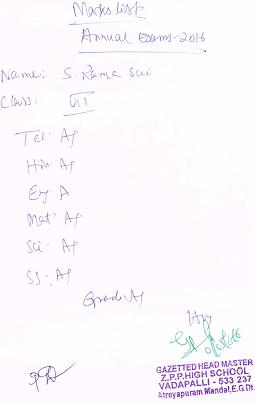 Marks List
Annual Exams-2016
Name: S. Rama Sai
Class: VII
Tel: A+
Hin: A+
Eng A
Mat: A+
Sci: A+
SS: A+
Grade A+
GAZETTED HEAD MASTER
Z.P.P.HIGH SCHOOL
VADAPALLI - 533 237
Atreyapuram Mandal, E.G.Dt.